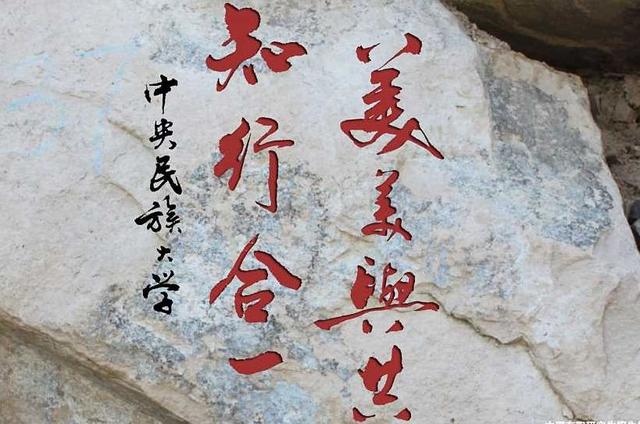 美美與共
知行合一
中央民族大学